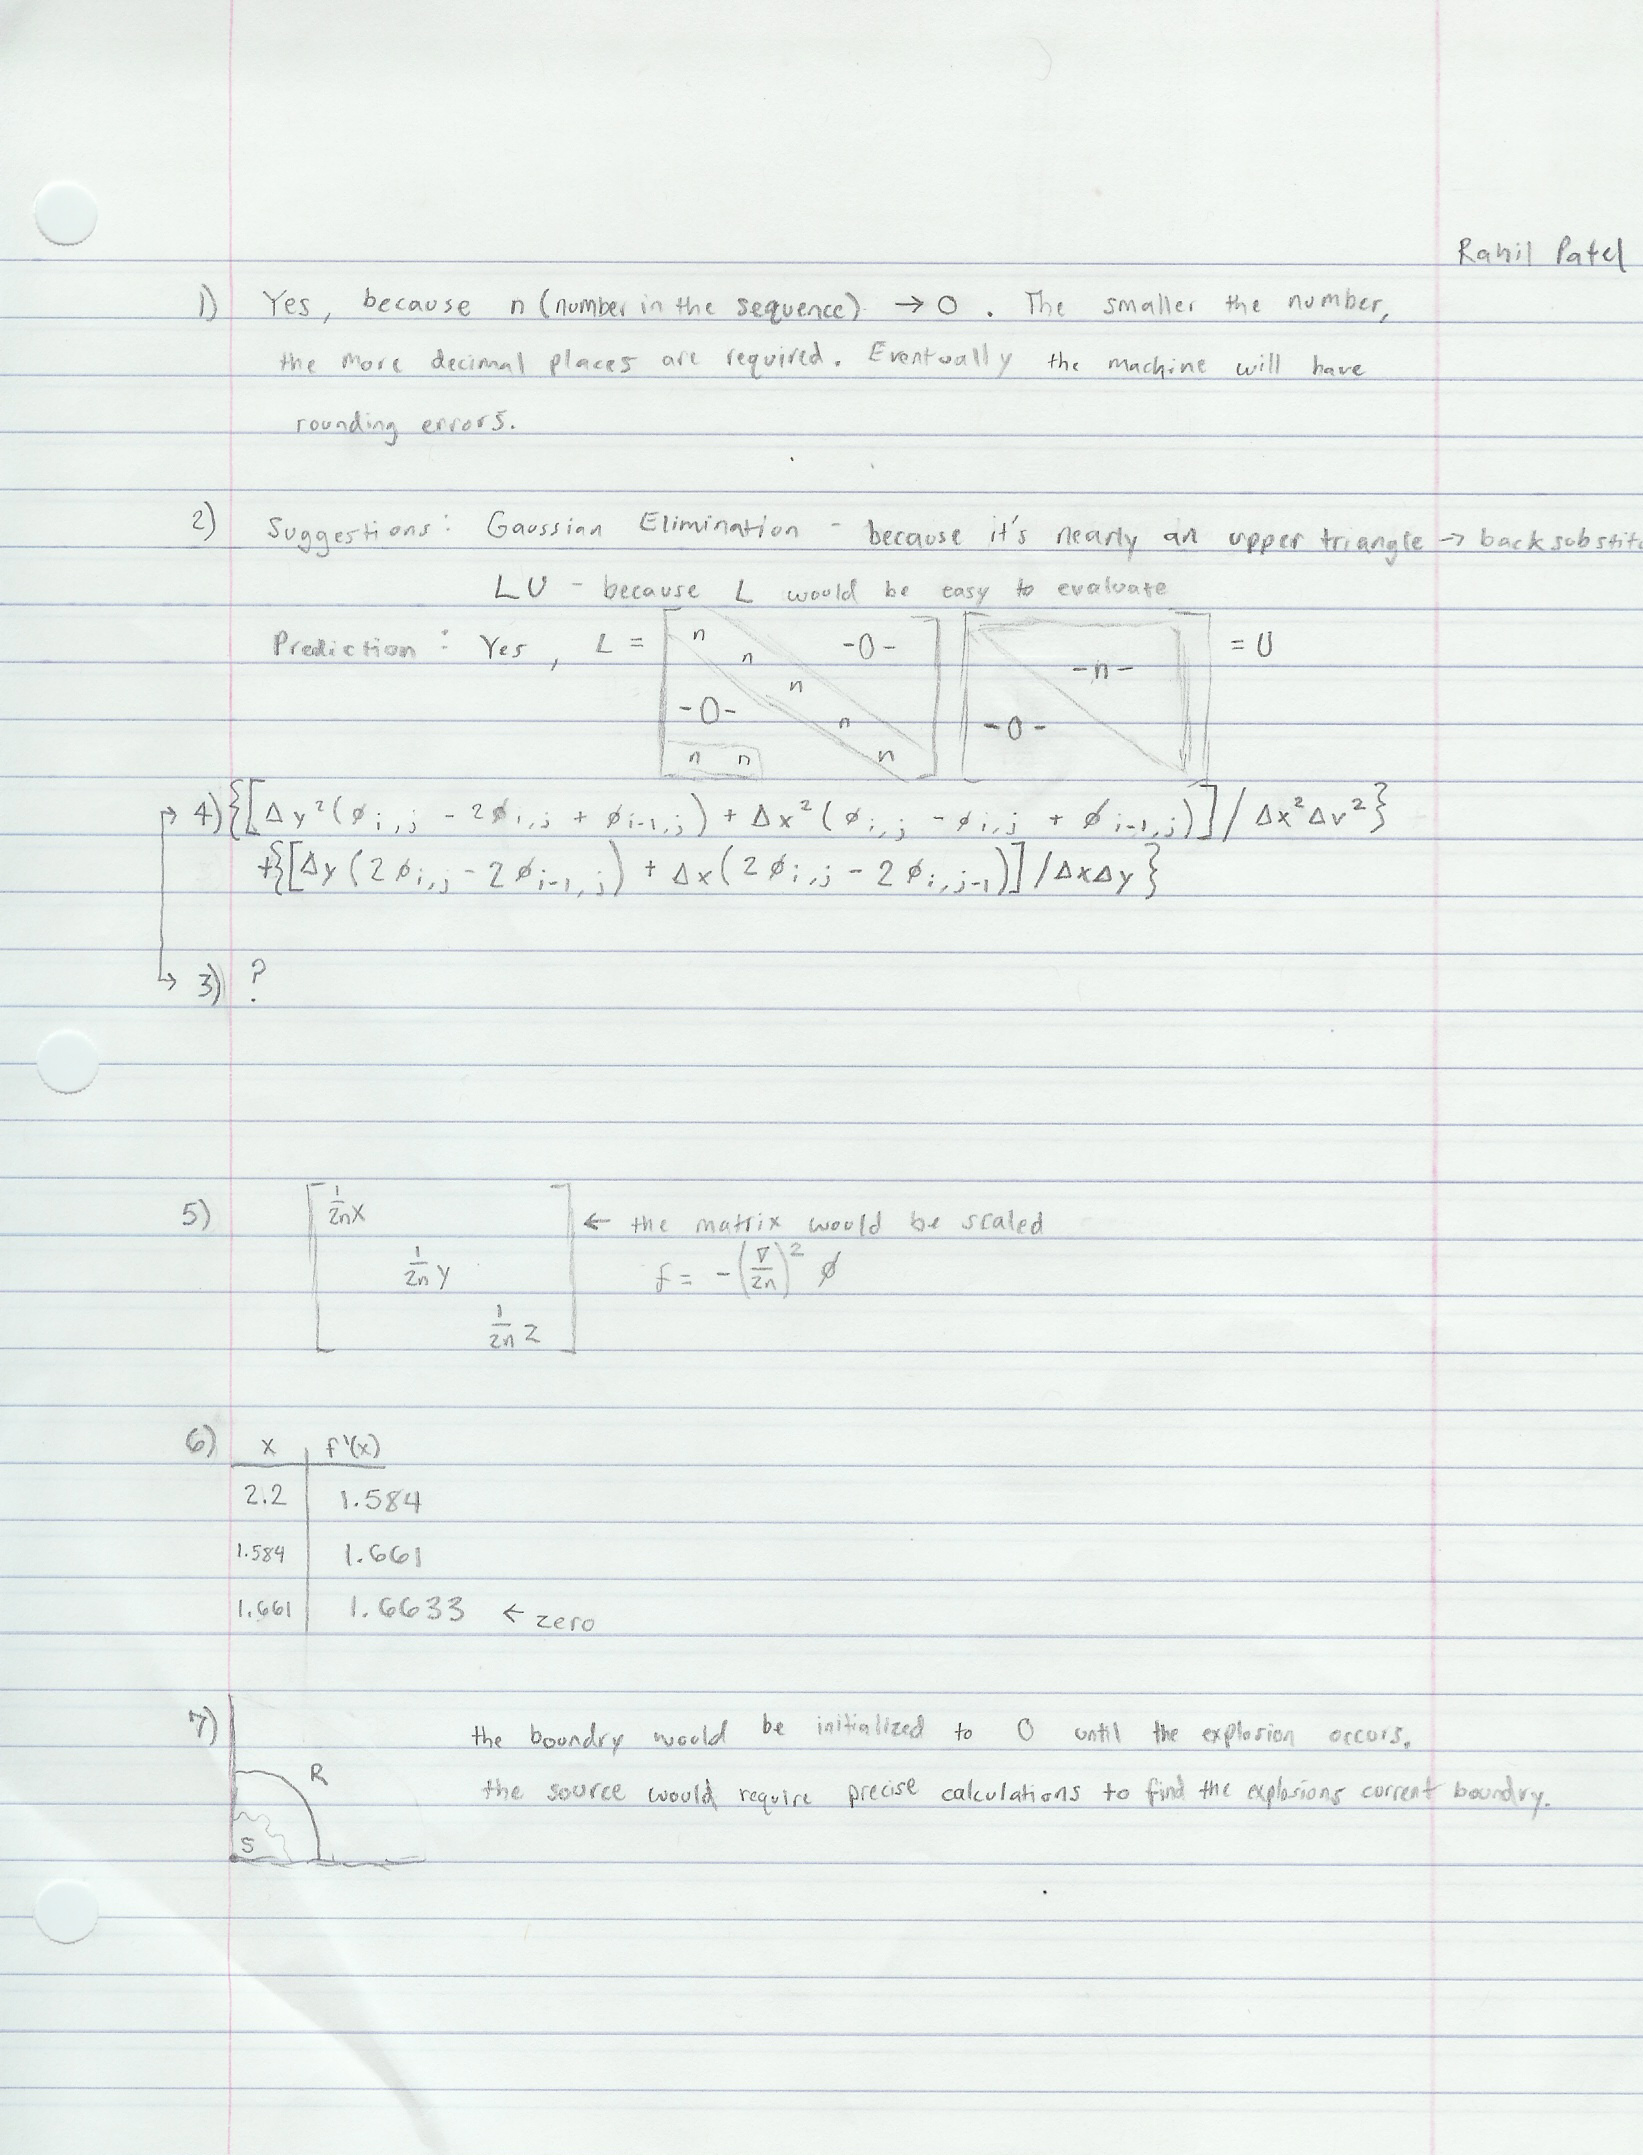 Rahil Patel
1) Yes, because n (number in the sequence) → 0. The smaller the number,
the more decimal places are required. Eventually the machine will have
rounding errors.
2) Suggestions: Gaussian Elimination - because it's nearly an upper triangle → backsubstitu
LU - because L would be easy to evaluate
Prediction: Yes, L = [n n n n n -0- -0- n n] [-n- -0-] = U
4) {[Δy²(ø i,j - 2ø i,j + ø i-1,j) + Δx²(ø i,j - ø i,j + ø i-1,j)] / Δx²Δv²}
+{[Δy(2ø i,j - 2ø i-1,j) + Δx(2ø i,j - 2ø i,j-1)] / ΔxΔy}
3) ?
5) [1/2n x 1/2n y 1/2n z] ← the matrix would be scaled
f = -(∇/2n)² ø
6) x f'(x)
2.2 1.584
1.584 1.661
1.661 1.6633 ← zero
7) the boundry would be initialized to 0 until the explosion occurs.
R
the source would require precise calculations to find the explosions current boundry.
S